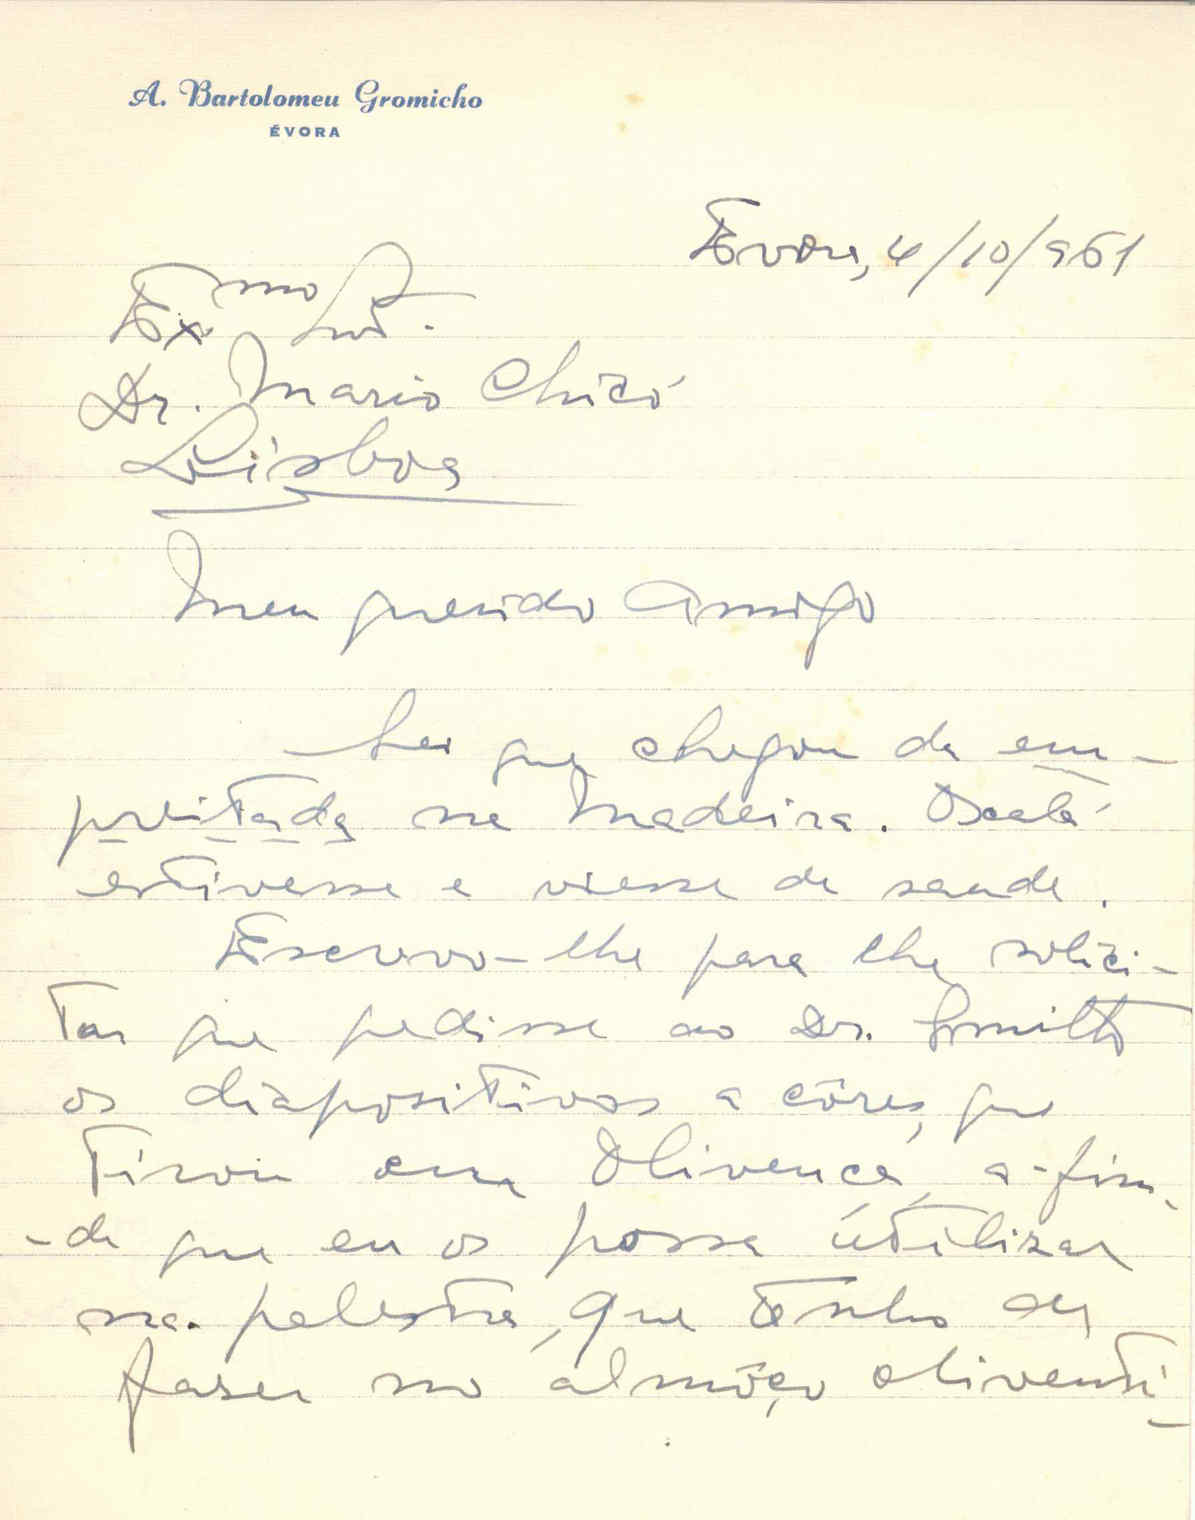 A. Bartolomeu Gromicho
ÉVORA
Évora, 4/10/961
Exmo Snr.
Dr. Mario Chicó
Lisboa
Meu querido Amigo
Sei que chegou da em-
preitada na Madeira. Oxalá
estivesse e viesse de saude.
Escrevo-lhe para lhe solici-
tar que pedisse ao Dr. Smith
os diapositivos a côres, que
tirou em Olivença, a-fim-
-de que eu os possa utilizar
na palestra, que tenho de
fazer no almôço oliventi-